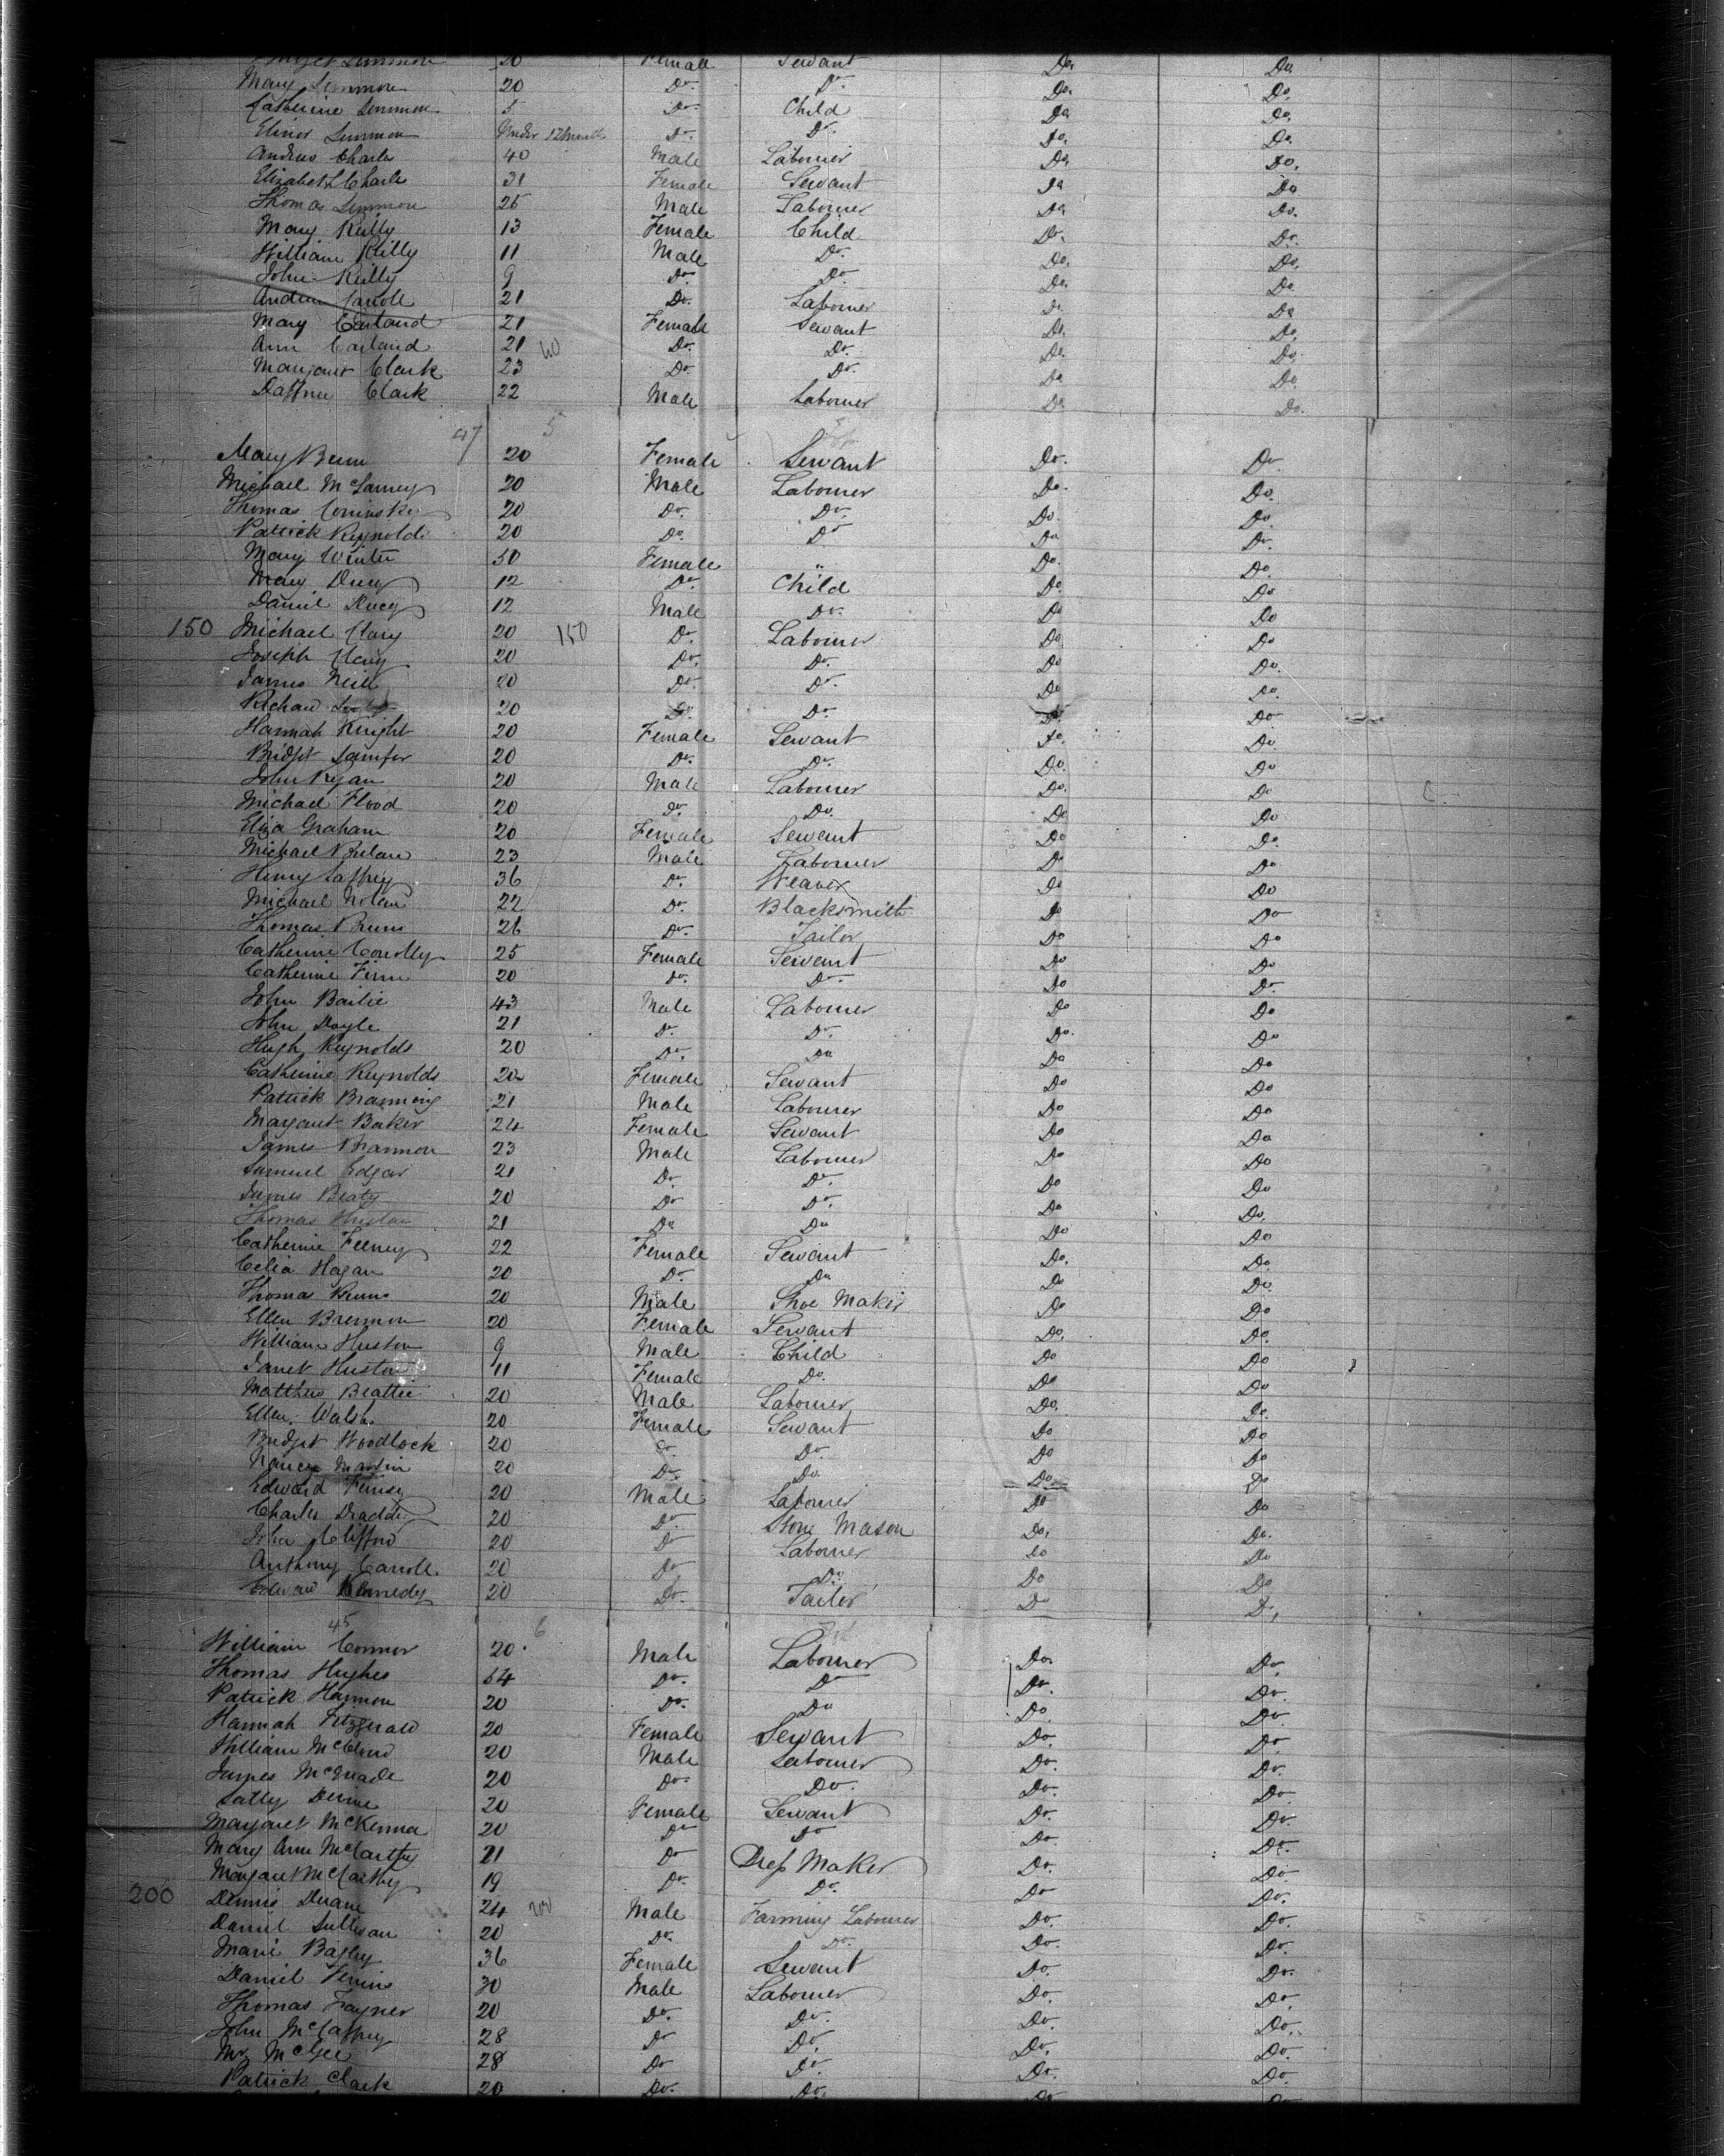 Lemmon 20 Female Servant Do. Do.
Mary Lemmon 20 Do. Do. Do. Do.
Catherine Lemmon 5 Do. Child Do. Do.
Elinor Lemmon Under 12 Months Do. Do. Do. Do.
Andrew Charls 40 Male Labourer Do. Do.
Elizabeth Charls 31 Female Servant Do Do
Thomas Lemmon 25 Male Labourer Do. Do.
Mary Reilly 13 Female Child Do. Do.
William Reilly 11 Male Do. Do. Do.
John Reilly 9 Do. Do Do. Do
Andrew Carroll 21 Do. Labourer Do. Do
Mary Carland 21 Female Servant Do. Do.
Ann Carland 21 40 Do. Do. Do. Do.
Margaret Clark 23 Do Do. Do Do.
Clark 22 Male Labourer Do. Do.
47 5
Mary Burn 20 Female Servant Do. Do
Michael 20 Male Labourer Do. Do.
Thomas 20 Do. Do. Do. Do
Patrick Reynolds 20 Do. Do Do Do.
Mary Winter 50 Female " Do. Do.
Mary Ducy 12 Do Child Do. Do
Daniel Ducy 12 Male Do. Do Do
150 Michael Clary 20 150 Do. Labourer Do Do
Joseph Clary 20 Do. Do. Do Do.
James Neill 20 Do. Do. Do Do.
Richard 20 Do. Do. Do. Do
Hannah Knight 20 Female Servant Do. Do
Bridget 20 Do. Do. Do. Do
John Ryan 20 Male Labourer Do. Do
Michael Flood 20 Do. Do. Do Do
Eliza Graham 20 Female Servant Do Do.
Michael 23 Male Labourer Do Do
Henry Caffrey 36 Do. Weaver Do Do
Michael Nolan 22 Do. Blacksmith Do Do
Thomas Burns 26 Do. Tailor Do Do
Catherine Conolly 25 Female Servant Do Do
Catherine Finn 20 Do. Do. Do Do.
John Bailie 43 Male Labourer Do Do
John Doyle 21 Do. Do. Do. Do
Hugh Reynolds 20 Do. Do Do Do
Catherine Reynolds 22 Female Servant Do Do
Patrick 21 Male Labourer Do Do
Margaret Baker 24 Female Servant Do Do
James Brannon 23 Male Labourer Do Do
Samuel Edgar 21 Do. Do. Do Do
James Beaty 20 Do Do. Do Do.
Thomas Huston 21 Do Do Do Do
Catherine Feeney 22 Female Servant Do. Do.
Celia Hagan 20 Do. Do Do Do.
Thomas Burns 20 Male Shoe Maker Do Do
Ellen Brennon 20 Female Servant Do. Do.
William Huston 9 Male Child Do Do
Janet Huston 11 Female Do. Do Do
Matthew Beattie 20 Male Labourer Do. Do.
Ellen Walsh 20 Female Servant Do Do
Bridget Woodlock 20 Do. Do. Do Do
Nancy Martin 20 Do. Do. Do Do
Edward 20 Male Labourer Do Do
Charles 20 Do Stone Mason Do. Do.
John Clifford 20 Do Labourer Do Do
Anthony Carroll 20 Do Do. Do Do
Edward Kennedy 20 Do. Tailor Do Do
45 6
William Connor 20 Male Labourer Do. Do.
Thomas Hughes 64 Do. Do Do. Do.
Patrick Hannon 20 Do. Do Do. Do
Hannah Fitzgerald 20 Female Servant Do. Do.
William McCloud 20 Male Labourer Do. Do.
James McQuade 20 Do. Do. Do. Do.
Sally 20 Female Servant Do. Do.
Margaret McKenna 20 Do Do Do. Do.
Mary Ann McCarthy 21 Do Dress Maker Do. Do.
Margaret McCarthy 19 Do. Do. Do Do.
200 Dennis Duane 24 200 Male Farming Labourer Do. Do.
Daniel Sullivan 20 Do. Do. Do. Do.
Marie Bagley 36 Female Servant Do. Do.
Daniel 30 Male Labourer Do. Do.
Thomas 20 Do. Do. Do. Do.
John McCaffrey 28 Do Do. Do. Do.
Mr McGee 28 Do Do Do. Do.
Patrick Clark 20 Do. Do. Do Do